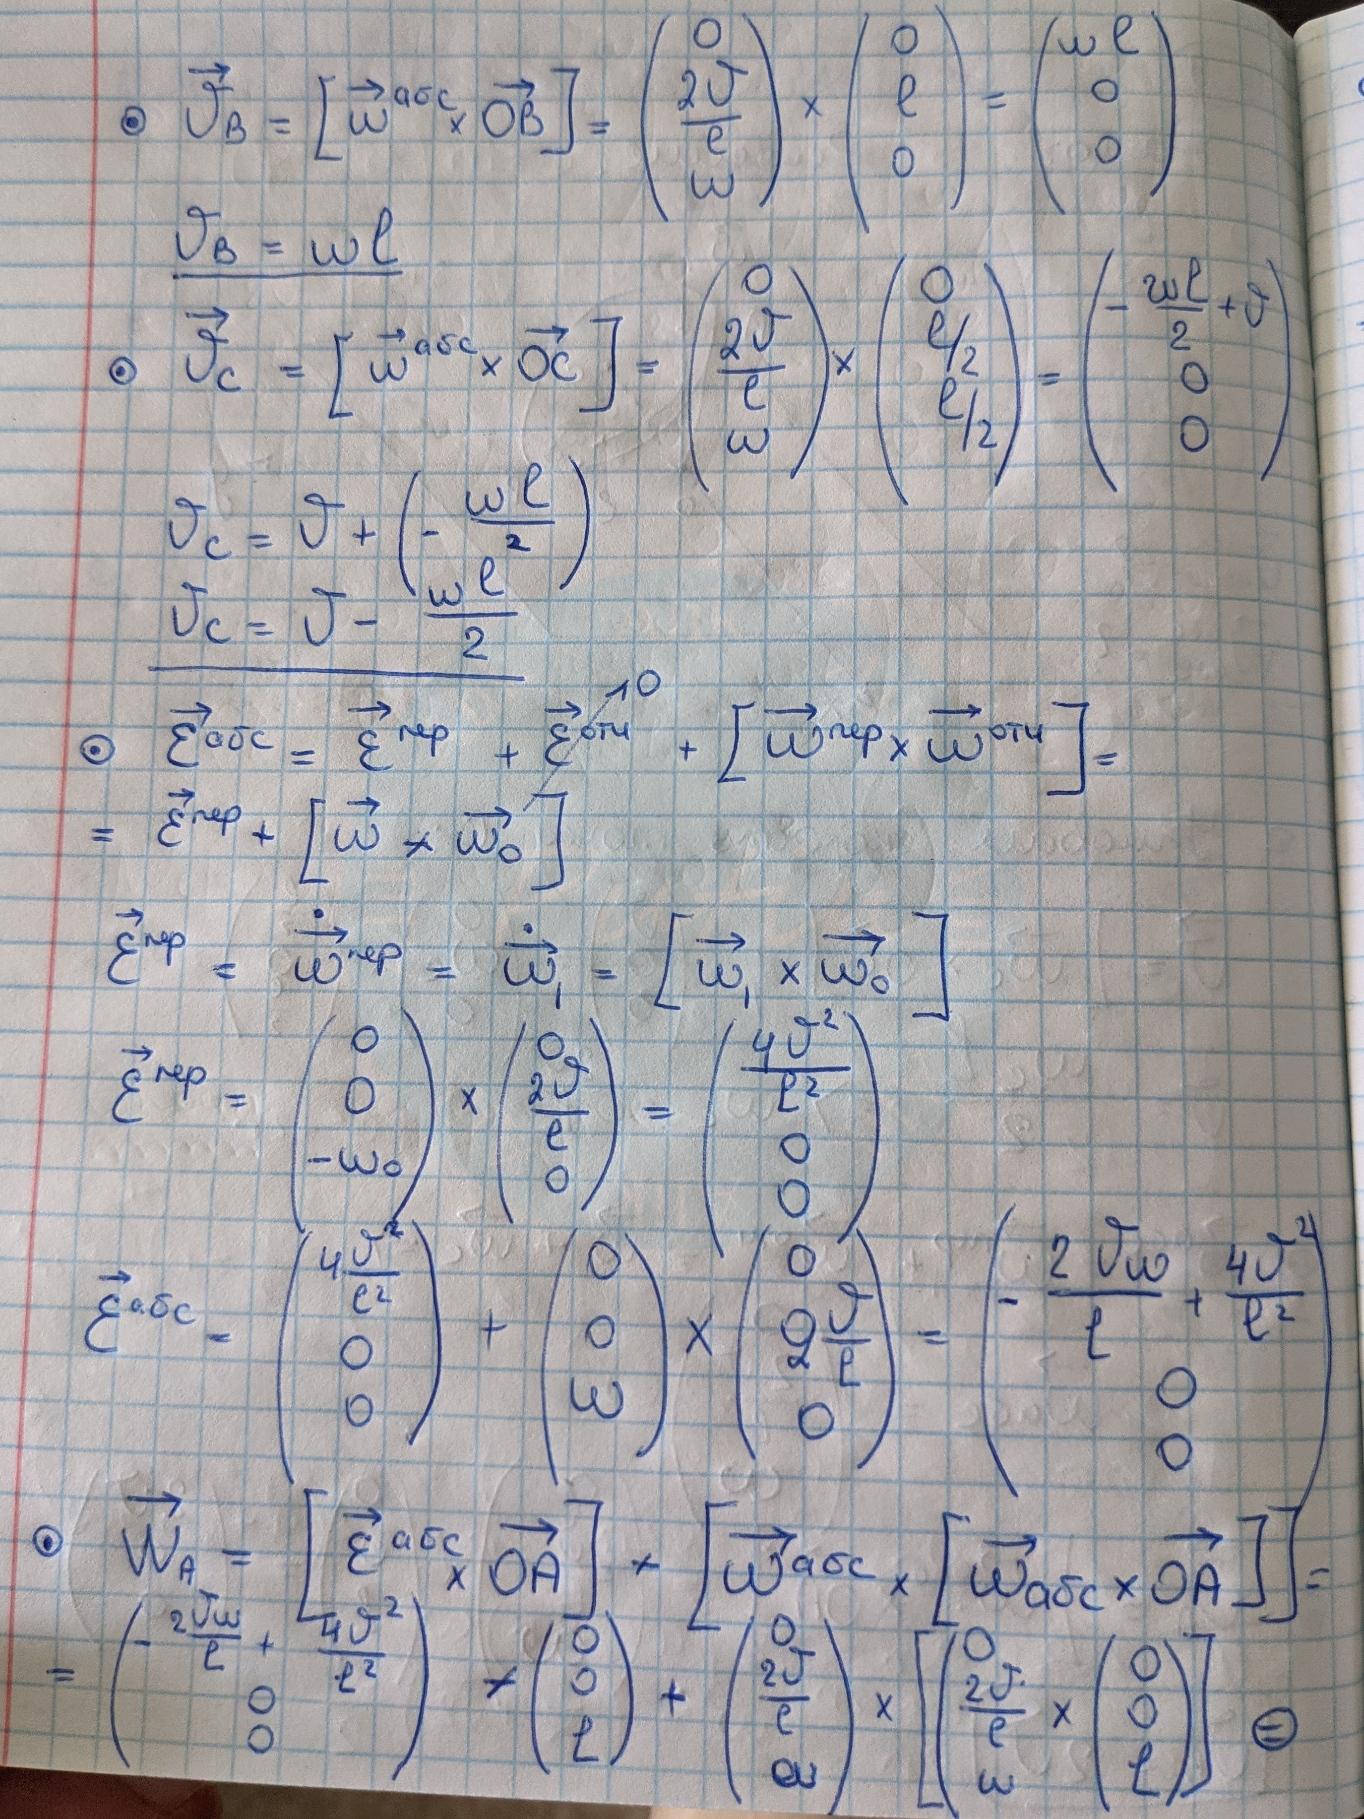 ⊙ $\vec{v}_B = [\vec{\omega}^{абс} \times \vec{OB}] = \begin{pmatrix} 0 \\ \frac{2v}{l} \\ \omega \end{pmatrix} \times \begin{pmatrix} 0 \\ l \\ 0 \end{pmatrix} = \begin{pmatrix} \omega l \\ 0 \\ 0 \end{pmatrix}$
$v_B = \omega l$
⊙ $\vec{v}_C = [\vec{\omega}^{абс} \times \vec{OC}] = \begin{pmatrix} 0 \\ \frac{2v}{l} \\ \omega \end{pmatrix} \times \begin{pmatrix} 0 \\ l/2 \\ l/2 \end{pmatrix} = \begin{pmatrix} -\frac{\omega l}{2} + v \\ 0 \\ 0 \end{pmatrix}$
$v_C = v + \left(-\frac{\omega l}{2}\right)$
$v_C = v - \frac{\omega l}{2}$
⊙ $\vec{\varepsilon}^{абс} = \vec{\varepsilon}^{пер} + \vec{\varepsilon}^{отн} \nearrow 0 + [\vec{\omega}^{пер} \times \vec{\omega}^{отн}] =$
$= \vec{\varepsilon}^{пер} + [\vec{\omega} \times \vec{\omega}_0]$
$\vec{\varepsilon}^{пер} = \dot{\vec{\omega}}^{пер} = \dot{\vec{\omega}}_1 = [\vec{\omega}_1 \times \vec{\omega}_0]$
$\vec{\varepsilon}^{пер} = \begin{pmatrix} 0 \\ 0 \\ -\omega_0 \end{pmatrix} \times \begin{pmatrix} 0 \\ \frac{2v}{l} \\ 0 \end{pmatrix} = \begin{pmatrix} \frac{4v^2}{l^2} \\ 0 \\ 0 \end{pmatrix}$
$\vec{\varepsilon}^{абс} = \begin{pmatrix} 4\frac{v^2}{l^2} \\ 0 \\ 0 \end{pmatrix} + \begin{pmatrix} 0 \\ 0 \\ \omega \end{pmatrix} \times \begin{pmatrix} 0 \\ 2\frac{v}{l} \\ 0 \end{pmatrix} = \begin{pmatrix} -\frac{2v\omega}{l} + \frac{4v^2}{l^2} \\ 0 \\ 0 \end{pmatrix}$
⊙ $\vec{W}_A = [\vec{\varepsilon}^{абс} \times \vec{OA}] + [\vec{\omega}^{абс} \times [\vec{\omega}_{абс} \times \vec{OA}]] =$
$= \begin{pmatrix} -\frac{2v\omega}{l} + \frac{4v^2}{l^2} \\ 0 \\ 0 \end{pmatrix} \times \begin{pmatrix} 0 \\ 0 \\ l \end{pmatrix} + \begin{pmatrix} 0 \\ \frac{2v}{l} \\ \omega \end{pmatrix} \times \left[ \begin{pmatrix} 0 \\ \frac{2v}{l} \\ \omega \end{pmatrix} \times \begin{pmatrix} 0 \\ 0 \\ l \end{pmatrix} \right] ⊜$